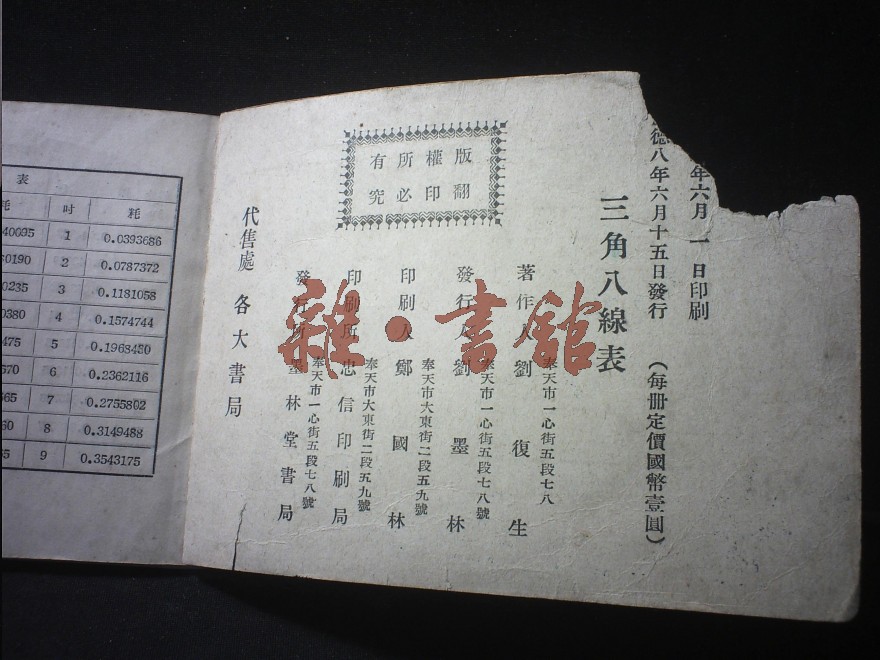 年六月一日印刷
德八年六月十五日發行 （每册定價國幣壹圓）
三角八線表
版權所有
翻印必究
奉天市一心街五段七八
著作人 劉復生
奉天市一心街五段七八號
發行人 劉墨林
奉天市大東街二段五九號
印刷人 鄭國林
奉天市大東街二段五九號
印刷所 忠信印刷局
奉天市一心街五段七八號
發行所 墨林堂書局
代售處 各大書局
雜·書館
表
吋 粍
40095 1 0.0393686
0190 2 0.0787372
0235 3 0.1181058
0380 4 0.1574744
475 5 0.1968430
570 6 0.2362116
665 7 0.2755802
60 8 0.3149488
9 0.3543175